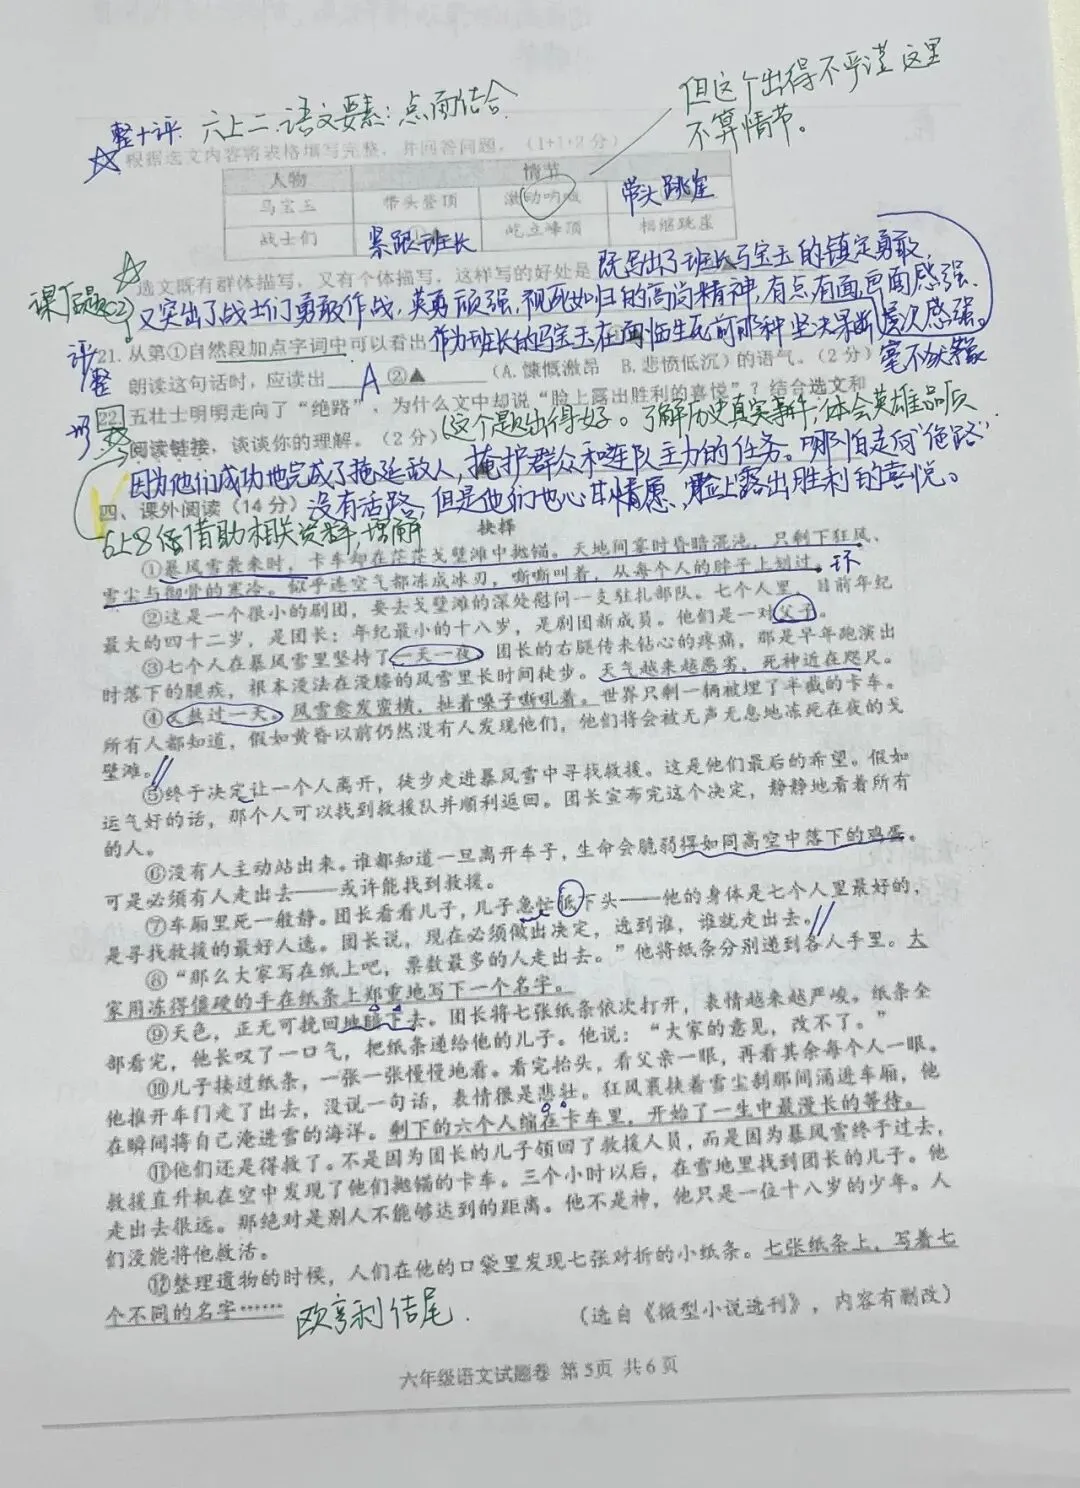 但这个出得不严谨 这里
不算情节。
整+评 六上二.语文要素:点面结合
根据选文内容将表格填写完整,并回答问题。(1+1+2分)
人物 情节
马宝玉 带头登顶 激动呐喊 带头跳崖
战士们 紧跟班长 屹立峰顶 相继跳崖
选文既有群体描写,又有个体描写,这样写的好处是 既写出了班长马宝玉的镇定勇敢,
课后题(2) 又突出了战士们勇敢作战,英勇顽强,视死如归的高尚精神,有点有面,画面感强,
层次感强。
21.从第①自然段加点字词中可以看出 作为班长的马宝玉在面临生死前那种坚决果断
毫不犹豫
评
整
朗读这句话时,应读出 A ②▲ (A.慷慨激昂 B.悲愤低沉)的语气。(2分)
22.五壮士明明走向了“绝路”,为什么文中却说“脸上露出胜利的喜悦”?结合选文和
阅读链接,谈谈你的理解。(2分)(这个题出得好。了解历史真实事件,体会英雄品质
因为他们成功地完成了拖延敌人,掩护群众和连队主力的任务。哪怕走向“绝路”
没有活路,但是他们也心甘情愿,脸上露出胜利的喜悦。
四、课外阅读(14分)
6上8借助相关资料,理解
抉择
①暴风雪袭来时,卡车却在茫茫戈壁滩中抛锚。天地间霎时昏暗混沌,只剩下狂风、
雪尘与彻骨的寒冷。似乎连空气都冻成冰刃,嘶嘶叫着,从每个人的脖子上划过。环
②这是一个很小的剧团,要去戈壁滩的深处慰问一支驻扎部队。七个人里,目前年纪
最大的四十二岁,是团长;年纪最小的十八岁,是剧团新成员。他们是一对父子。
③七个人在暴风雪里坚持了一天一夜。团长的右腿传来钻心的疼痛,那是早年跑演出
时落下的腿疾,根本没法在漫膝的风雪里长时间徒步。天气越来越恶劣,死神近在咫尺。
④又熬过一天。风雪愈发蛮横,扯着嗓子嘶吼着。世界只剩一辆被埋了半截的卡车。
所有人都知道,假如黄昏以前仍然没有人发现他们,他们将会被无声无息地冻死在夜的戈
壁滩。
⑤终于决定让一个人离开,徒步走进暴风雪中寻找救援。这是他们最后的希望。假如
运气好的话,那个人可以找到救援队并顺利返回。团长宣布完这个决定,静静地看着所有
的人。
⑥没有人主动站出来。谁都知道一旦离开车子,生命会脆弱得如同高空中落下的鸡蛋。
可是必须有人走出去——或许能找到救援。
⑦车厢里死一般静。团长看看儿子,儿子急忙低下头——他的身体是七个人里最好的,
是寻找救援的最好人选。团长说,现在必须做出决定,选到谁,谁就走出去。
⑧“那么大家写在纸上吧,票数最多的人走出去。”他将纸条分别递到各人手里。大
家用冻得僵硬的手在纸条上郑重地写下一个名字。
⑨天色,正无可挽回地暗下去。团长将七张纸条依次打开,表情越来越严峻。纸条全
部看完,他长叹了一口气,把纸条递给他的儿子。他说:“大家的意见,改不了。”
⑩儿子接过纸条,一张一张慢慢地看。看完抬头,看父亲一眼,再看其余每个人一眼。
他推开车门走了出去,没说一句话,表情很是悲壮。狂风裹挟着雪尘刹那间涌进车厢,他
在瞬间将自己淹进雪的海洋。剩下的六个人缩在卡车里,开始了一生中最漫长的等待。
⑪他们还是得救了。不是因为团长的儿子领回了救援人员,而是因为暴风雪终于过去,
救援直升机在空中发现了他们抛锚的卡车。三个小时以后,在雪地里找到团长的儿子。他
走出去很远。那绝对是别人不能够达到的距离。他不是神,他只是一位十八岁的少年。人
们没能将他救活。
⑫整理遗物的时候,人们在他的口袋里发现七张对折的小纸条。七张纸条上,写着七
个不同的名字…… 欧亨利结尾.
(选自《微型小说选刊》,内容有删改)
六年级语文试题卷 第5页 共6页